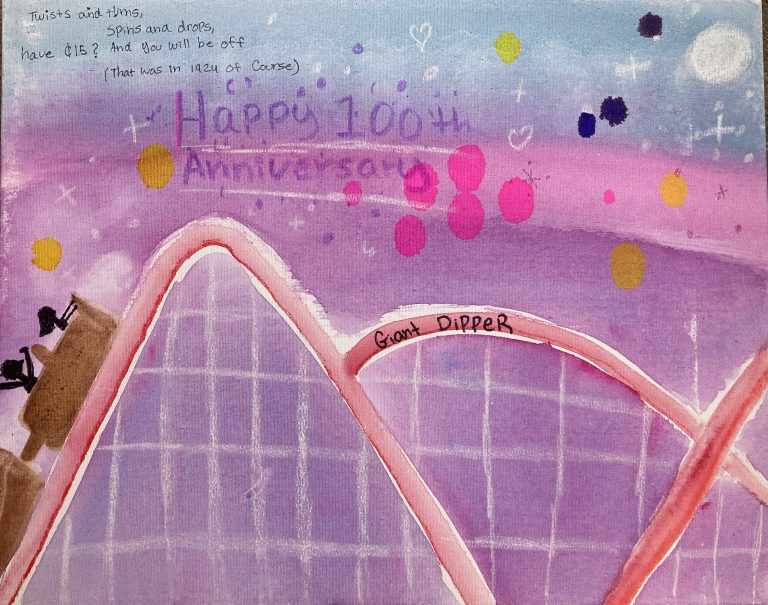 Twists and turns,
Spins and drops,
have ¢15? And you will be off
(That was in 1924 of Course)
Happy 100th
Anniversary
Giant Dipper